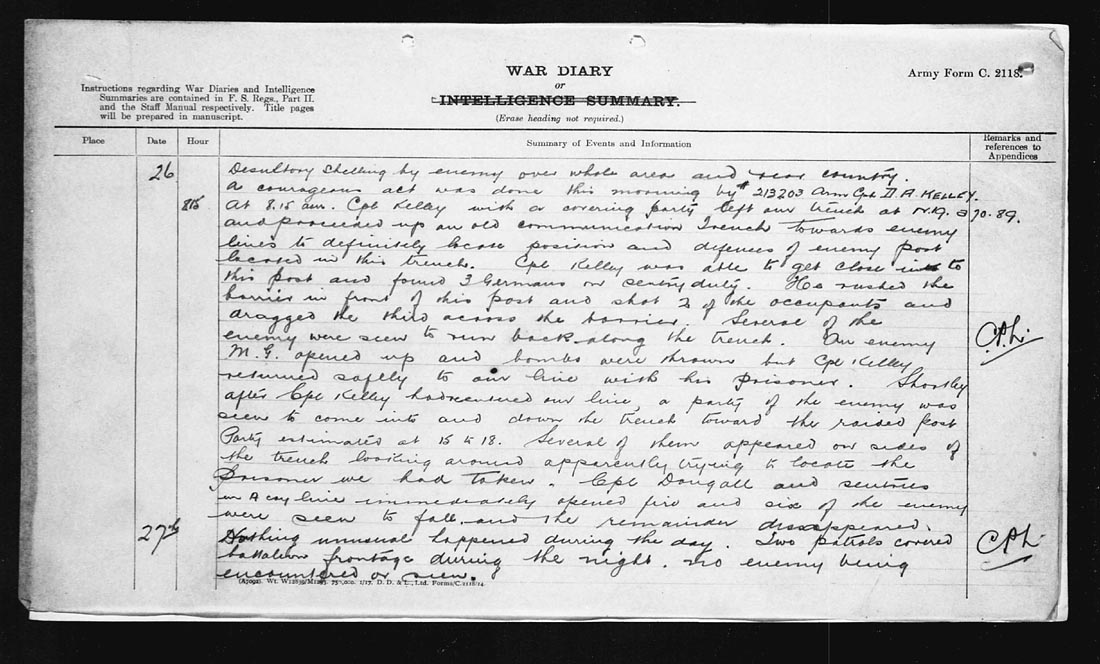 WAR DIARY
or
INTELLIGENCE SUMMARY.
(Erase heading not required.)
Army Form C. 2118.
Instructions regarding War Diaries and Intelligence
Summaries are contained in F. S. Regs., Part II.
and the Staff Manual respectively. Title pages
will be prepared in manuscript.
Place Date Hour Summary of Events and Information Remarks and references to Appendices
26 Desultory shelling by enemy over whole area and rear country.
A courageous act was done this morning by # 213203 Cpl D A KELLEY.
8.15 At 8.15 am. Cpl Kelley with a covering party left our trench at 70-89.
and proceeded up an old communication trench towards enemy
lines to definitely locate position and defences of enemy post
located in this trench. Cpl Kelley was able to get close to
this post and found 3 Germans on sentry duty. He rushed the
barrier in front of this post and shot 2 of the occupants and
dragged the third across the barrier. Several of the
enemy were seen to run back along the trench. An enemy
M.G. opened up and bombs were thrown but Cpl Kelley
returned safely to our line with his prisoner. Shortly
after Cpl Kelley had reentered our line, a party of the enemy was
seen to come into and down the trench toward the raided post
Party estimated at 15 to 18. Several of them appeared on sides of
the trench looking around apparently trying to locate the
prisoner we had taken. Cpl Dougall and sentries
in A coy line immediately opened fire and six of the enemy
were seen to fall and the remainder disappeared.
27th Nothing unusual happened during the day. Two patrols covered
battalion frontage during the night. no enemy being
encountered or seen.
D. D. & L., Ltd. Forms/C.2118/14.